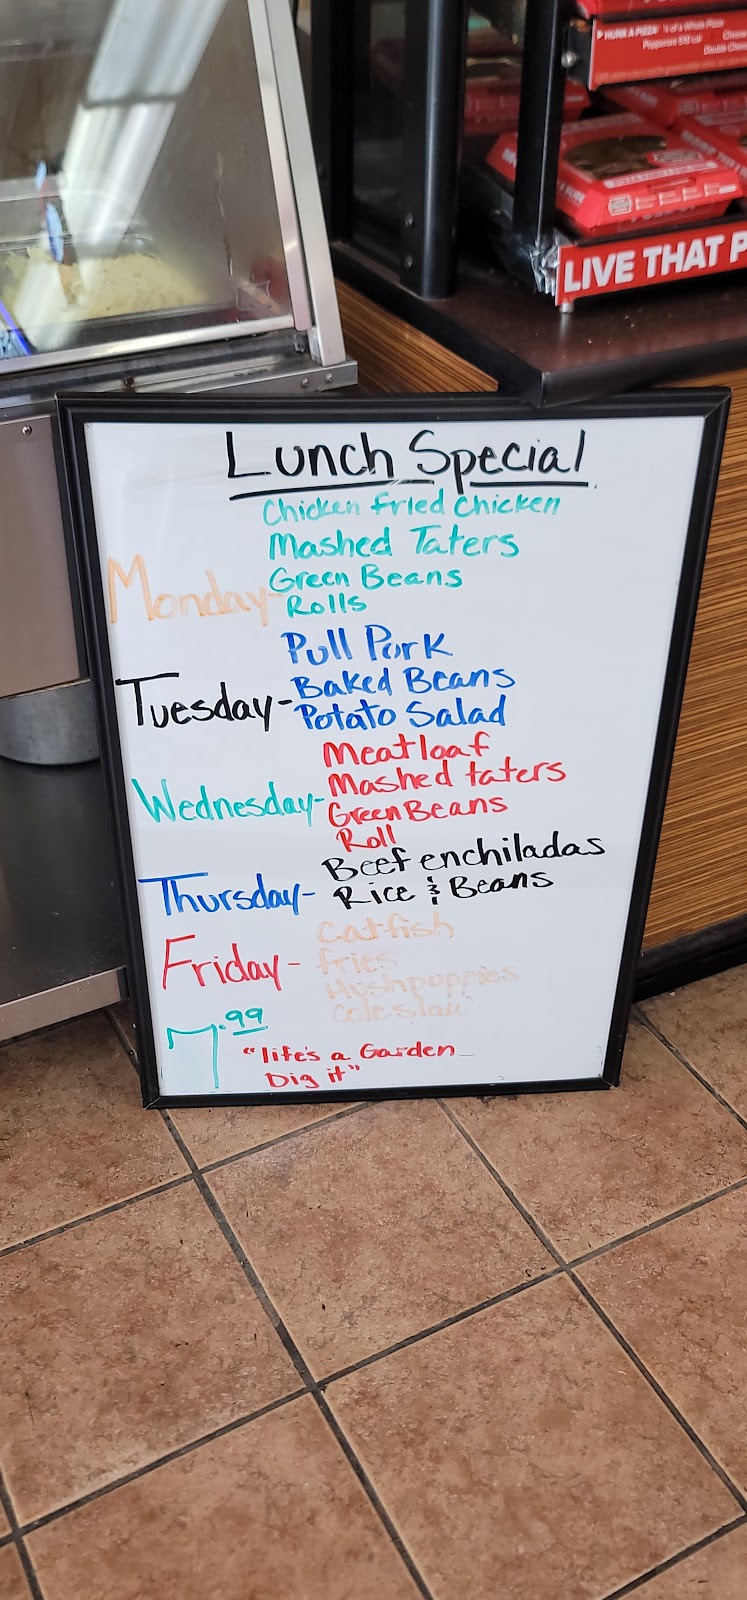 HUNK A PIZZA
LIVE THAT P
Lunch Special
Chicken Fried Chicken
Mashed Taters
Green Beans
Monday-
Rolls
Pull Pork
Baked Beans
Tuesday-
Potato Salad
Meatloaf
Mashed taters
Wednesday-
Green Beans
Roll
Beef enchiladas
Thursday-
Rice & Beans
Catfish
Friday-
fries
Hushpuppies
Coleslaw
7.99
"life's a Garden
Dig it"